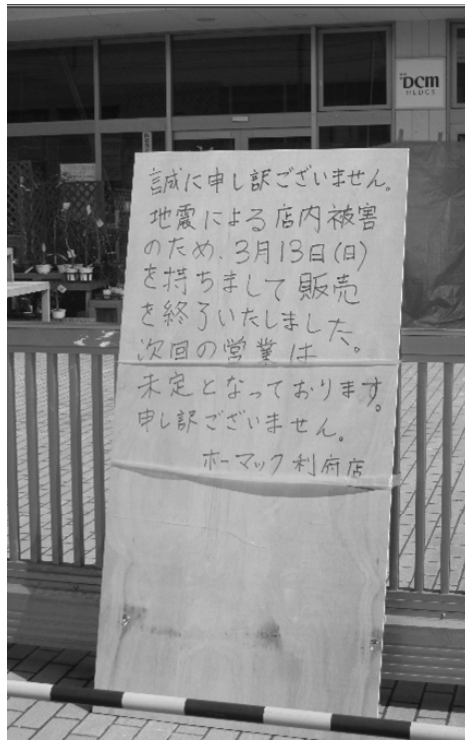 DCM
HLDGS
誠に申し訳ございません。
地震による店内被害
のため、3月13日(日)
を持ちまして販売
を終了いたしました。
次回の営業は
未定となっております。
申し訳ございません。
ホーマック利府店